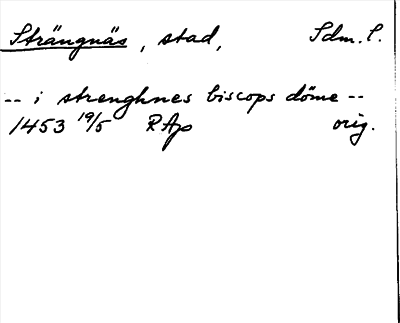 Strängnäs, stad, Sdm. l.
-- i strenghnes biscops döme --
1453 19/5 RAp orig.